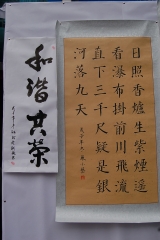 日照香爐生紫煙遥
看瀑布掛前川飛流
直下三千尺疑是銀
河落九天
和谐共荣